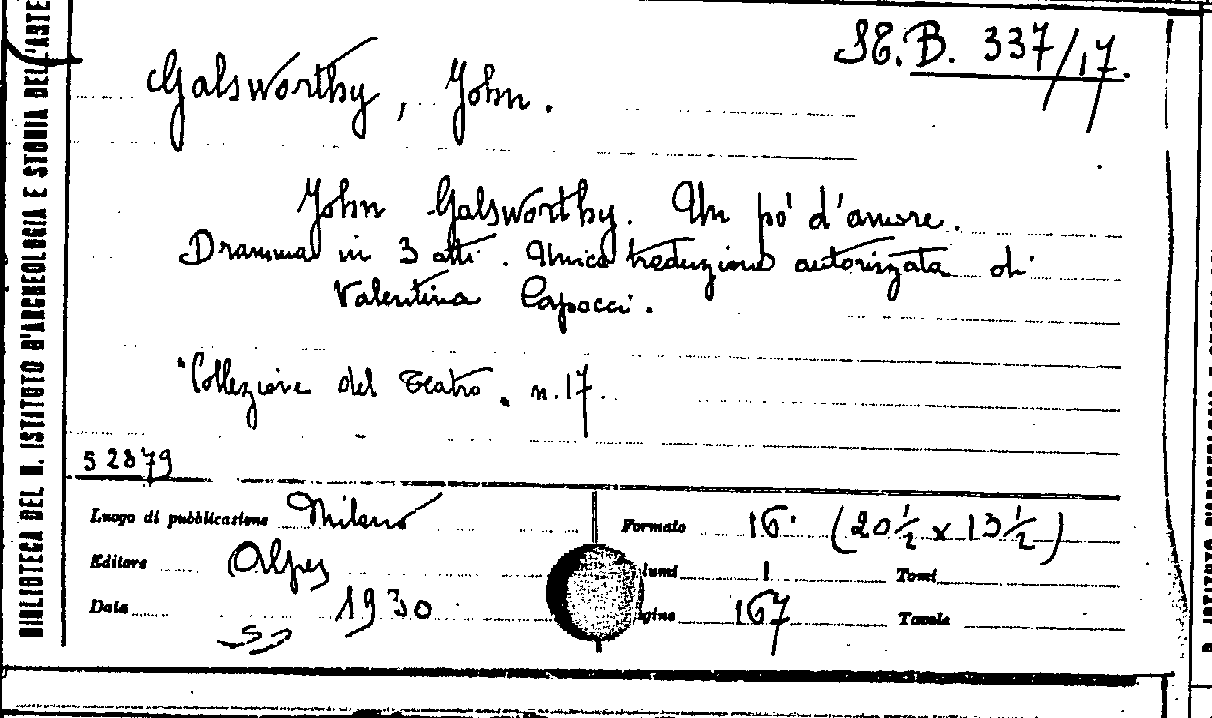 BIBLIOTECA DEL R. ISTITUTO D'ARCHEOLOGIA E STORIA DELL'ARTE
SE.B. 337/17.
Galsworthy, John.
John Galsworthy. Un pò' d'amore.
Dramma in 3 atti. Unica traduzione autorizzata di
Valentina Capocci.
"Collezione del Teatro" n.17.
52879
Luogo di pubblicazione Milano
Formato 16° (20½ x 13½)
Editore Alpes
lumi 1 Tomi
Data 1930
gine 167 Tavole